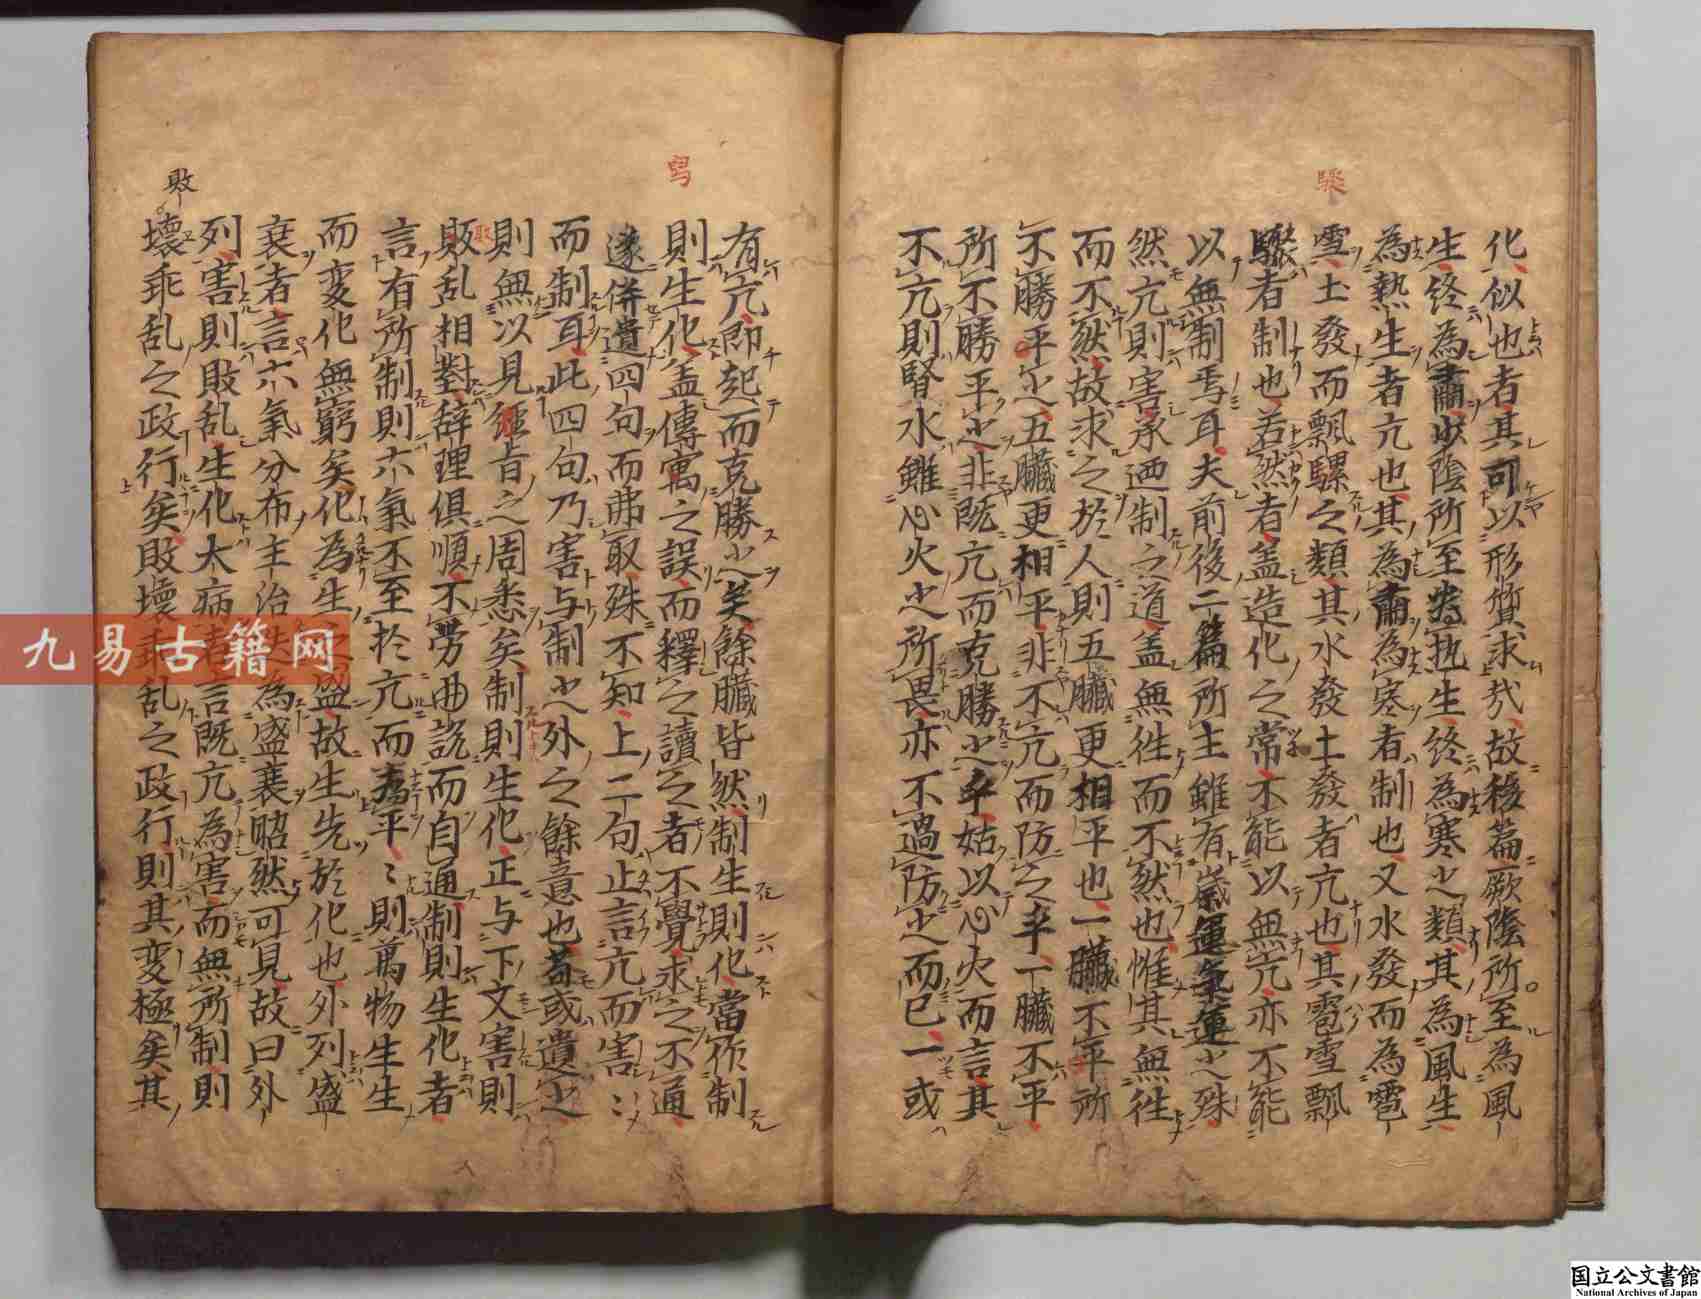 化似也者其可以形質求哉故後篇厥陰所至為風
生終為肅少陰所至為热生終為寒之類其為風生
為熱生者亢也其為肅為寒者制也又水發而為雹
雪土發而飄驟之類其水發土發者亢也其雹雪飄
驟者制也若然者盖造化之常不能以無亢亦不能
以無制焉耳夫前後二篇所主雖有歳運氣運之殊
然亢則害承迺制之道盖無徃而不然也惟其無徃
而不然故求之於人則五臟更相平也一臟不平所
不勝平之五臟更相平非不亢而防之乎一臟不平
所不勝平之非既亢而克勝之乎姑以心火而言其
不亢則腎水雖心火之所畏亦不過防之而已一或
有亢即起而克勝之矣餘臟皆然制生則化當作制
則生化盖傳寫之誤而釋之讀之者不覺求之不通
遂併遺四句而弗取殊不知上二句止言亢而害〻
而制耳此四句乃害与制之外之餘意也苟或遺之
則無以見經旨之周悉矣制則生化正与下文害則
敗乱相對辞理俱順不勞曲說而自通制則生化者
言有所制則六氣不至於亢而為平〻則萬物生生
而変化無窮矣化為生之盛故生先於化也外列盛
衰者言六氣分布主治迭為盛衰昭然可見故曰外
列害則敗乱生化太病者言既亢為害而無所制則
壞乖乱之政行矣敗壞乖乱之政行則其変極矣其
驟
寫
敗
敗
九易古籍网
国立公文書館
National Archives of Japan